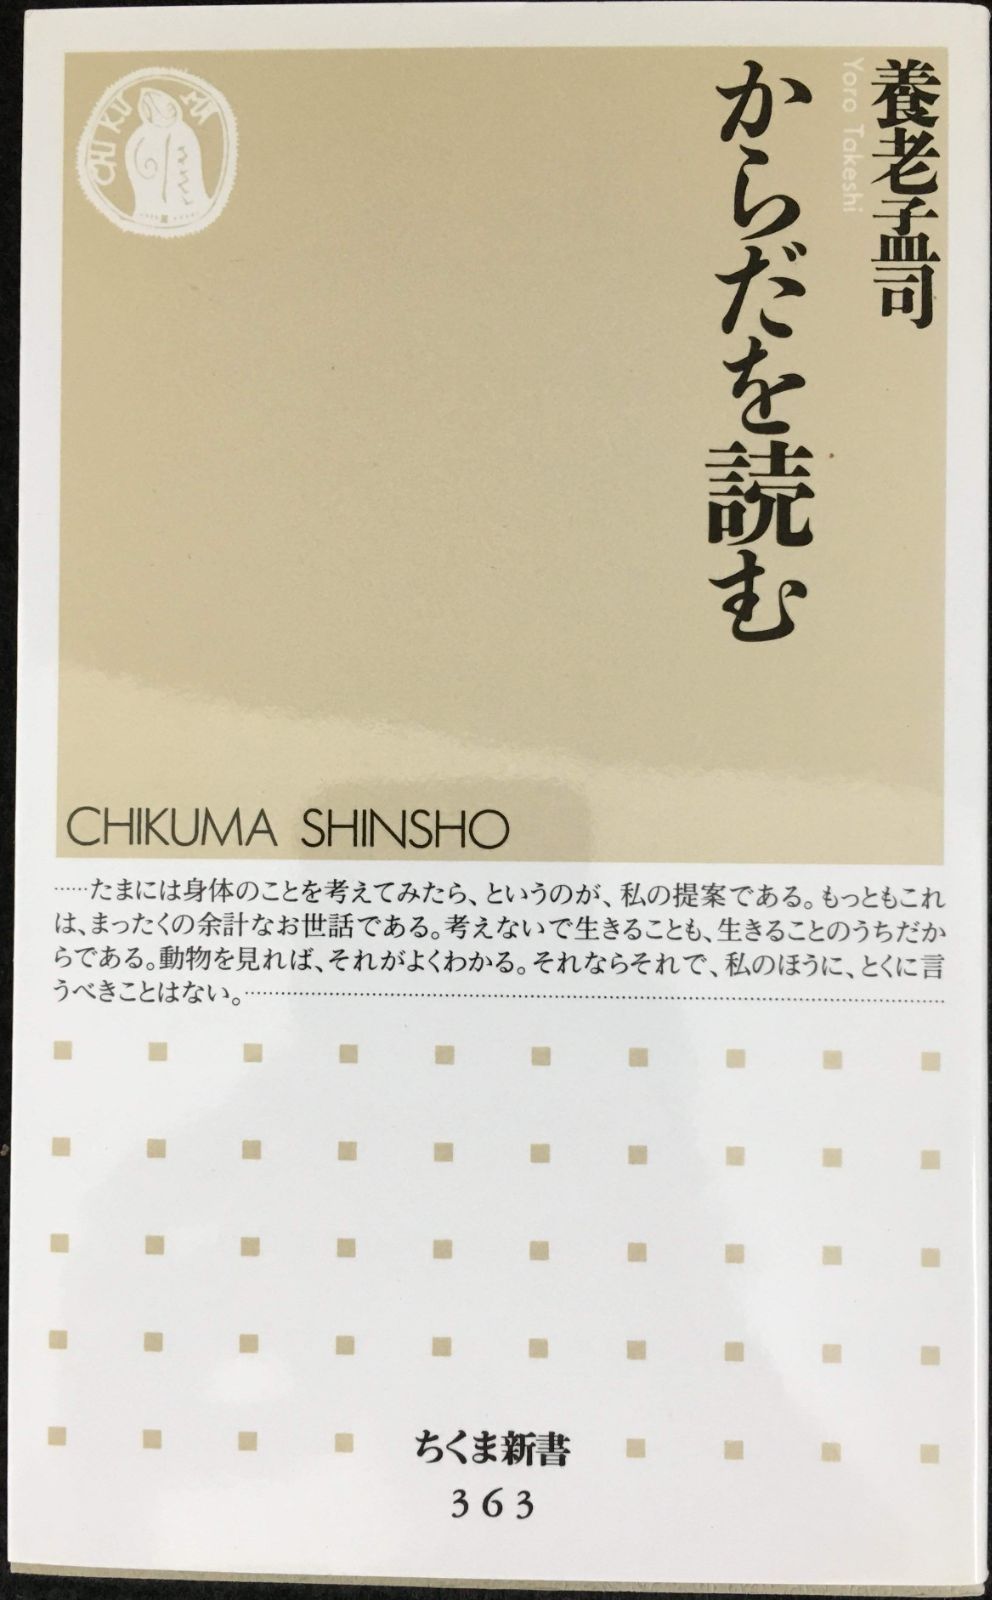 養老孟司
Yoro Takeshi
からだを読む
CHIKUMA
CHIKUMA SHINSHO
……たまには身体のことを考えてみたら、というのが、私の提案である。もっともこれ
は、まったくの余計なお世話である。考えないで生きることも、生きることのうちだか
らである。動物を見れば、それがよくわかる。それならそれで、私のほうに、とくに言
うべきことはない。……
ちくま新書
363